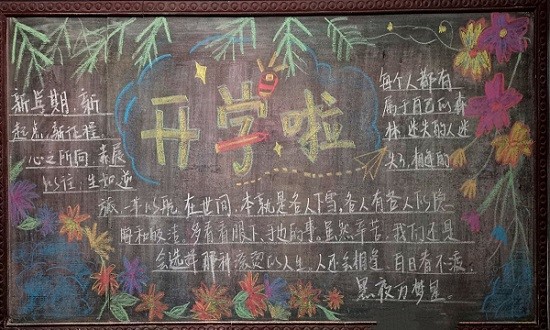 开学啦
新学期.新
起点.新征程.
心之所向 素履
以往.生如逆
旅.一苇以航
每个人都有
属于自己的森
林 迷失的人迷
失了.相逢的
在世间.本就是各人下雪.各人有各人的隐
晦和皎洁.多看看眼下.手边的事.虽然辛苦.我们还是
会选择那种滚烫的人生.人还会相逢
黑夜万梦星.